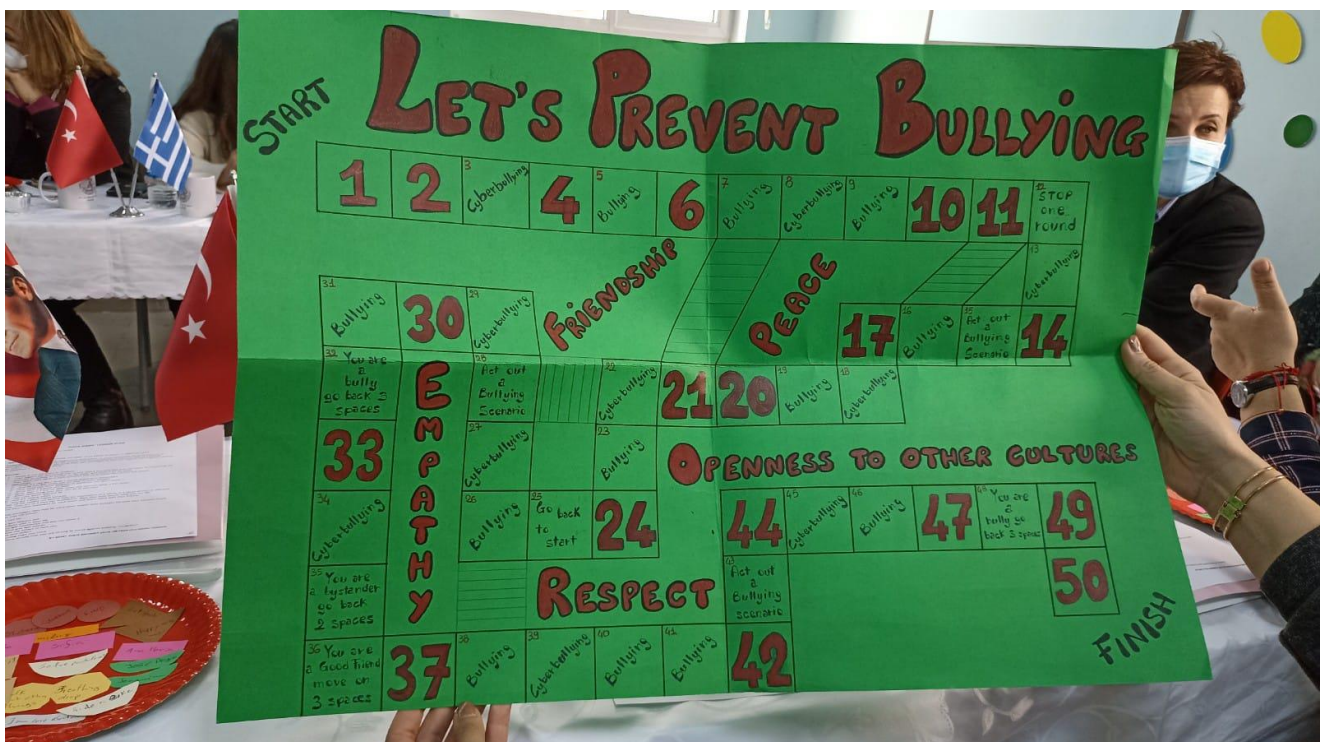 START
LET'S PREVENT BULLYING
1
2
3 Cyberbullying
4
5 Bullying
6
7 Bullying
8 Cyberbullying
9 Bullying
10
11
12 STOP
one
round
13 Cyberbullying
14
15 Act out
a
Bullying
Scenario
16 Bullying
17
FRIENDSHIP
PEACE
18 Cyberbullying
19 Bullying
20
21
22 Cyberbullying
23 Bullying
24
25 Go back
to
start
26 Bullying
27 Cyberbullying
28 Act out
a
Bullying
Scenario
29 Cyberbullying
30
31 Bullying
32 You are
a
bully
go back 3
spaces
33
34 Cyberbullying
35 You are
a bystander
go back
2 spaces
36 You are
a Good friend
move on
3 spaces
37
EMPATHY
RESPECT
38 Bullying
39 Cyberbullying
40 Bullying
41 Bullying
42
43 Act out
a
Bullying
scenario
OPENNESS TO OTHER CULTURES
44
45 Cyberbullying
46 Bullying
47
48 You are
a
bully go
back 3 spaces
49
50
FINISH